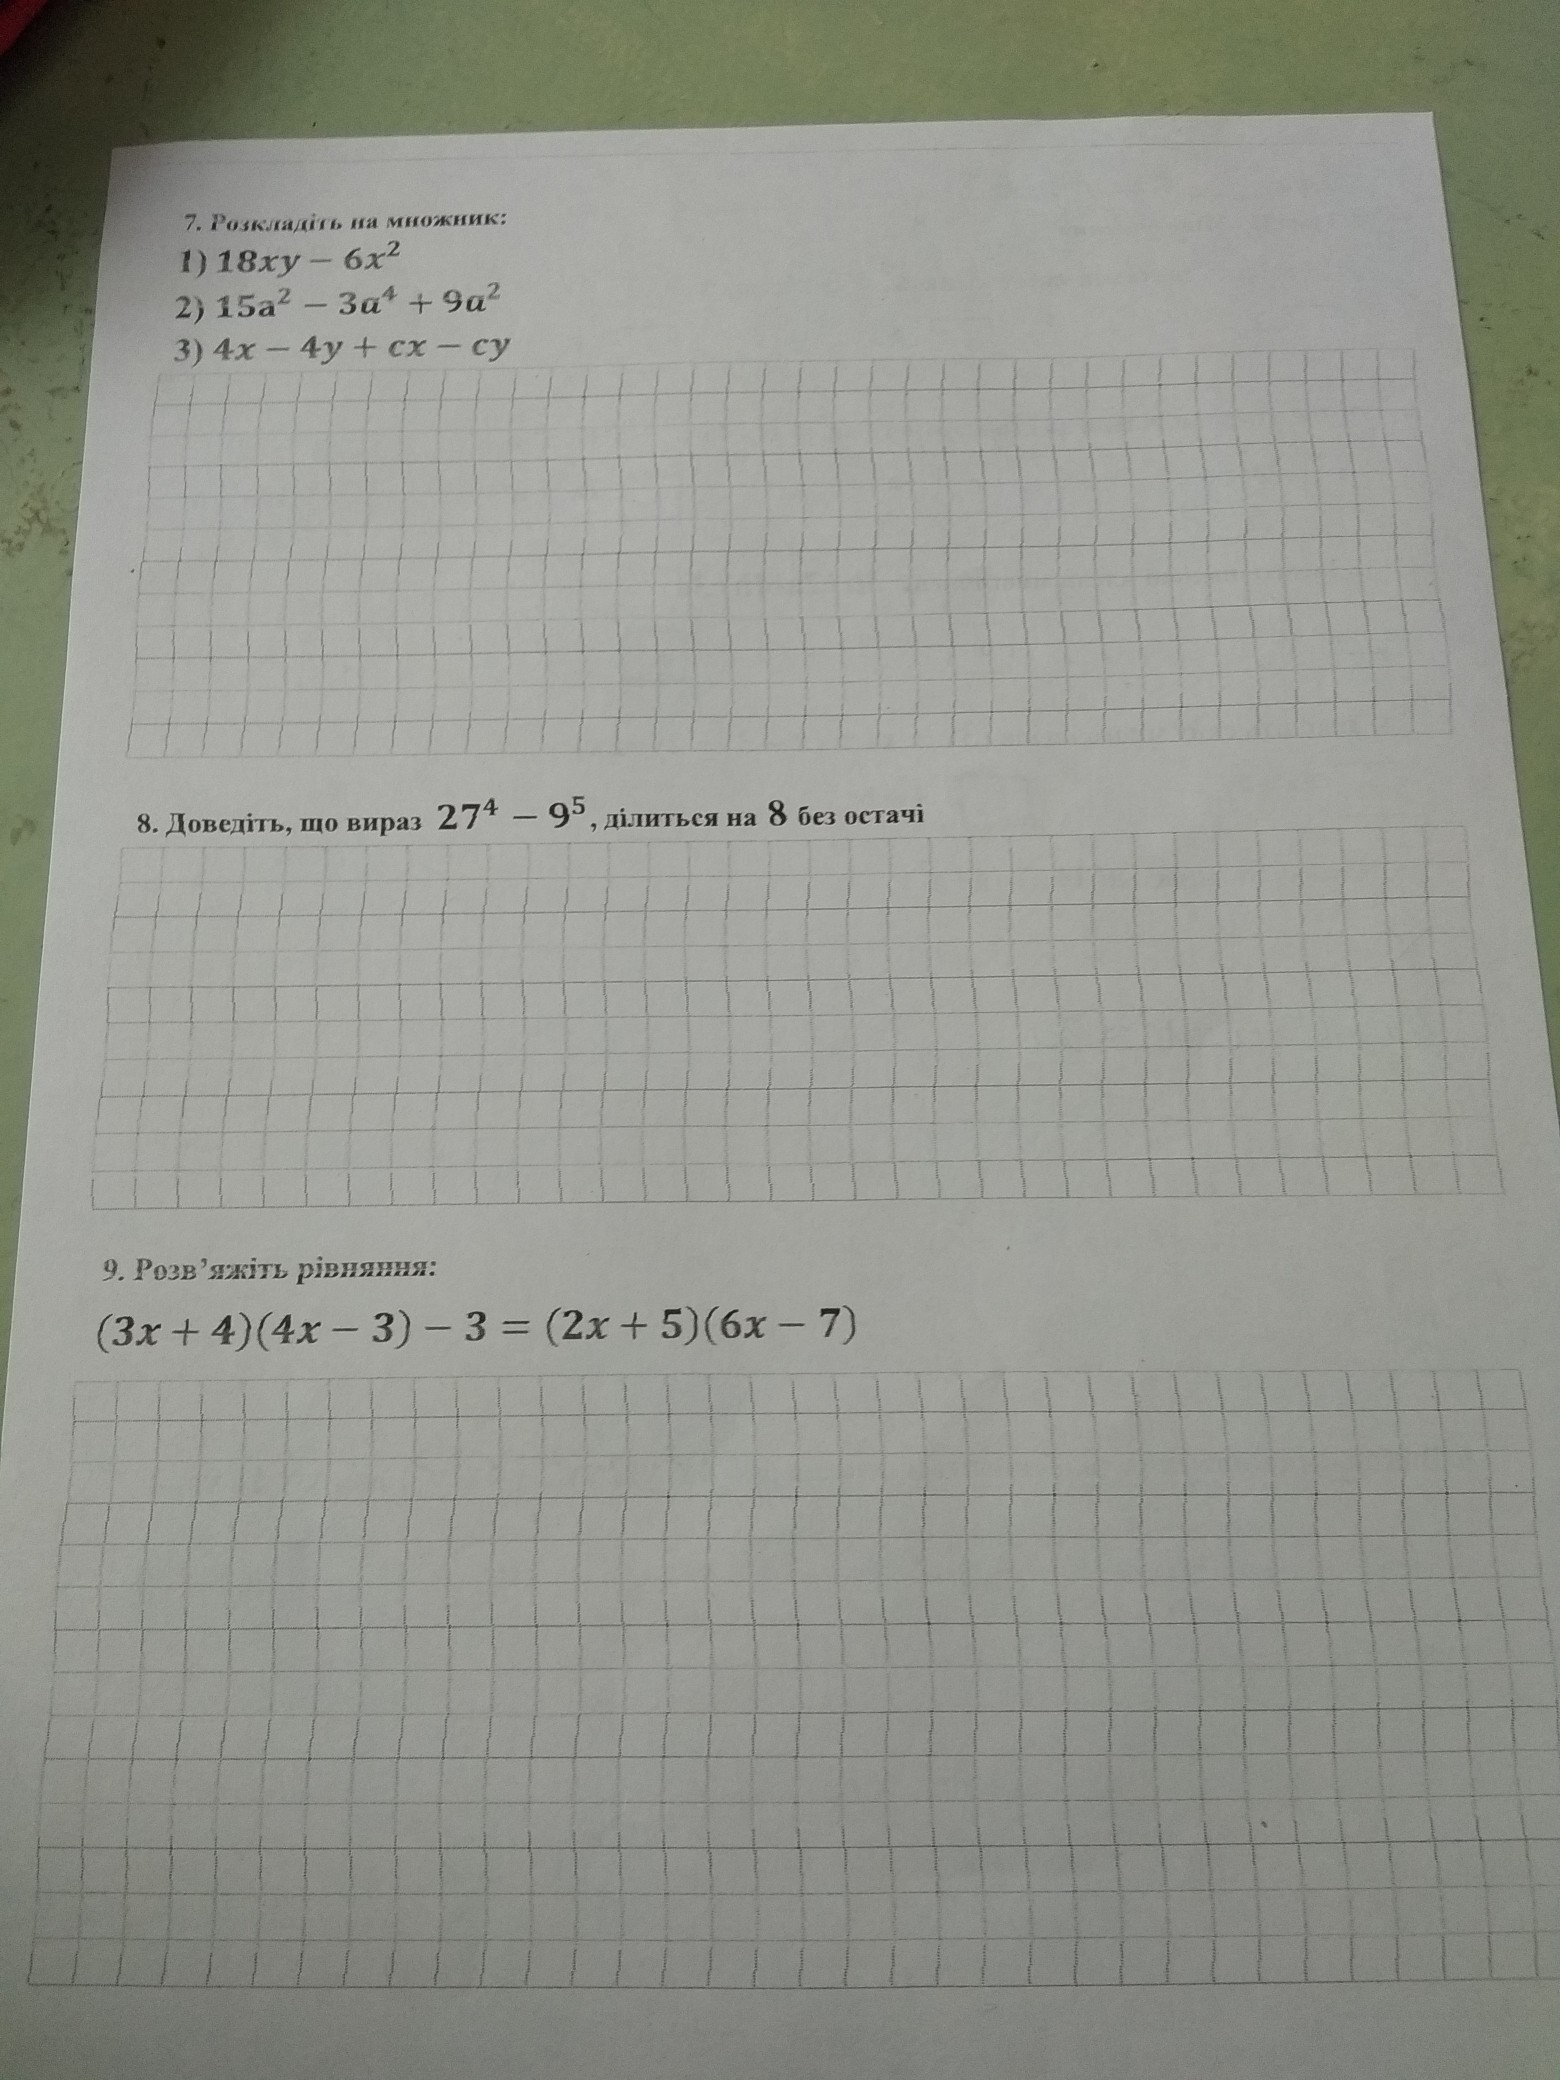 7. Розкладіть на множник:
1) 18xy − 6x²
2) 15a² − 3a⁴ + 9a²
3) 4x − 4y + cx − cy
8. Доведіть, що вираз 27⁴ − 9⁵, ділиться на 8 без остачі
9. Розв’яжіть рівняння:
(3x + 4)(4x − 3) − 3 = (2x + 5)(6x − 7)